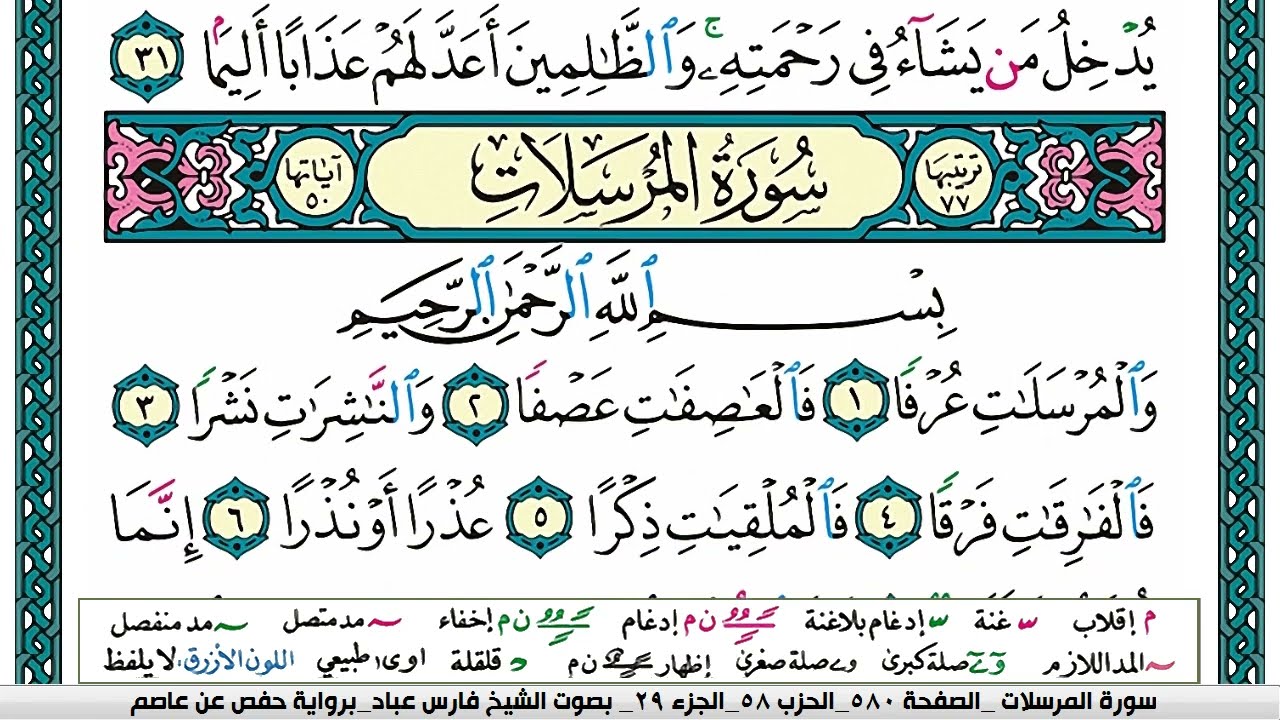 يُدْخِلُ مَن يَشَآءُ فِى رَحْمَتِهِۦ ۚ وَٱلظَّٰلِمِينَ أَعَدَّ لَهُمْ عَذَابًا أَلِيمَۢا ٣١
ترتيبها ٧٧ سُورَةُ المُرْسَلَاتِ آيَاتها ٥٠
بِسْمِ ٱللَّهِ ٱلرَّحْمَٰنِ ٱلرَّحِيمِ
وَٱلْمُرْسَلَٰتِ عُرْفًا ١ فَٱلْعَٰصِفَٰتِ عَصْفًا ٢ وَٱلنَّٰشِرَٰتِ نَشْرًا ٣
فَٱلْفَٰرِقَٰتِ فَرْقًا ٤ فَٱلْمُلْقِيَٰتِ ذِكْرًا ٥ عُذْرًا أَوْ نُذْرًا ٦ إِنَّمَا
م إقلاب س غنة س إدغام بلاغنة ن م إدغام ن م إخفاء مد متصل مد منفصل
المد اللازم وے صلة كبرى وے صلة صغرى إظهار ن م د قلقلة اوى طبيعي اللون الأزرق: لا يلفظ
سورة المرسلات _الصفحة ٥٨٠_الحزب ٥٨_الجزء ٢٩_ بصوت الشيخ فارس عباد_برواية حفص عن عاصم